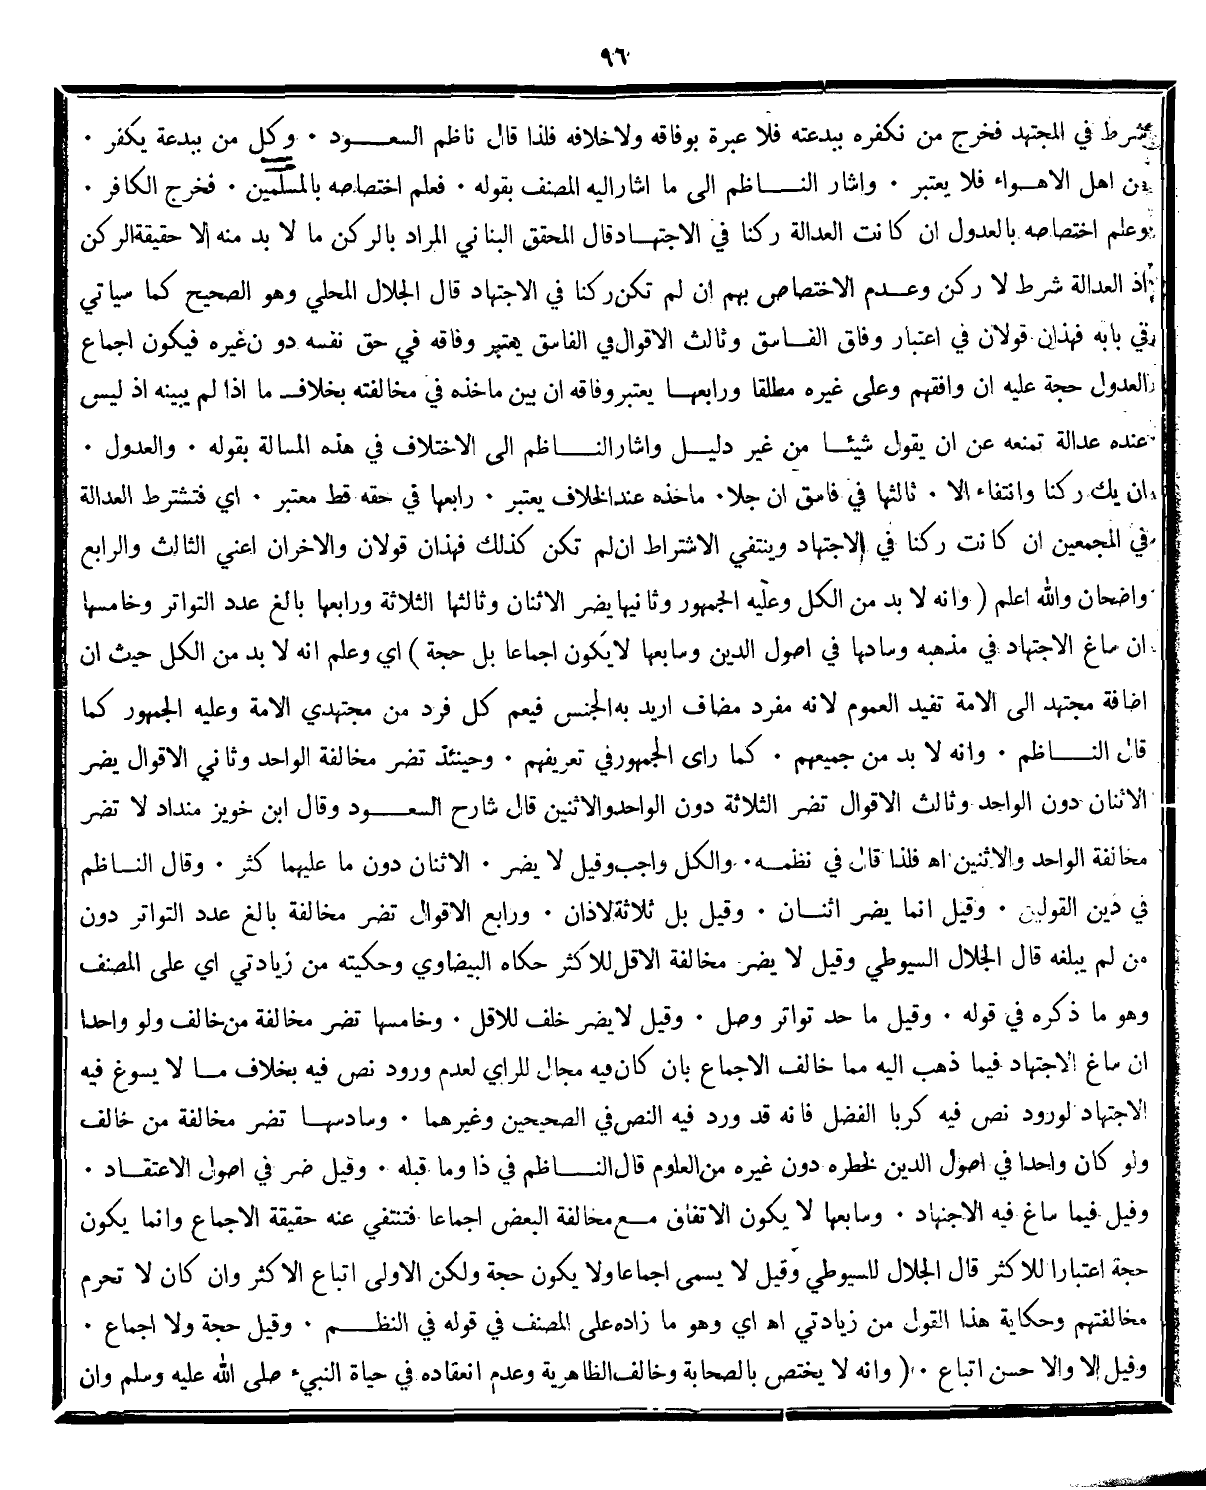 ٩٦
شرط في المجتهد فخرج من نكفره ببدعته فلا عبرة بوفاقه ولاخلافه فلذا قال ناظم السعـود ٠ وكل من ببدعة يكفر ٠
من اهل الاهـواء فلا يعتبر ٠ واشار النـاظم الى ما اشاراليه المصنف بقوله ٠ فعلم اختصاصه بالمسلمين ٠ فخرج الكافر ٠
وعلم اختصاصه بالعدول ان كانت العدالة ركنا في الاجتهـادقال المحقق البناني المراد بالركن ما لا بد منه لا حقيقةالركن
اذ العدالة شرط لا ركن وعـدم الاختصاص بهم ان لم تكن ركنا في الاجتهاد قال الجلال المحلي وهو الصحيح كما سياتي
في بابه فهذان قولان في اعتبار وفاق الفـاسق وثالث الاقوال في الفاسق يعتبر وفاقه في حق نفسه دو ن غيره فيكون اجماع
العدول حجة عليه ان وافقهم وعلى غيره مطلقا ورابعهـا يعتبر وفاقه ان بين ماخذه في مخالفته بخلاف ما اذا لم يبينه اذ ليس
عنده عدالة تمنعه عن ان يقول شيئـا من غير دليـل واشارالنـاظم الى الاختلاف في هذه المسالة بقوله ٠ والعدول ٠
ان يك ركنا وانتفاء الا ٠ ثالثها في فاسق ان جلا ٠ ماخذه عندالخلاف يعتبر ٠ رابعها في حقه قط معتبر ٠ اي فتشترط العدالة
في المجمعين ان كانت ركنا في الاجتهاد وينتفي الاشتراط ان لم تكن كذلك فهذان قولان والاخران اعني الثالث والرابع
واضحان والله اعلم ( وانه لا بد من الكل وعليه الجمهور وثانيها يضر الاثنان وثالثها الثلاثة ورابعها بالغ عدد التواتر وخامسها
ان ساغ الاجتهاد في مذهبه وسادسها في اصول الدين وسابعها لايكون اجماعا بل حجة ) اي وعلم انه لا بد من الكل حيث ان
اضافة مجتهد الى الامة تفيد العموم لانه مفرد مضاف اريد به الجنس فيعم كل فرد من مجتهدي الامة وعليه الجمهور كما
قال النـاظم ٠ وانه لا بد من جميعهم ٠ كما راى الجمهور في تعريفهم ٠ وحينئذ تضر مخالفة الواحد وثاني الاقوال يضر
الاثنان دون الواحد وثالث الاقوال تضر الثلاثة دون الواحدوالاثنين قال شارح السعـود وقال ابن خويز منداد لا تضر
مخالفة الواحد والاثنين اه فلذا قال في نظمـه ٠ والكل واجب وقيل لا يضر ٠ الاثنان دون ما عليهما كثر ٠ وقال النـاظم
في ذين القولين ٠ وقيل انما يضر اثنـان ٠ وقيل بل ثلاثة لاذان ٠ ورابع الاقوال تضر مخالفة بالغ عدد التواتر دون
من لم يبلغه قال الجلال السيوطي وقيل لا يضر مخالفة الاقل للاكثر حكاه البيضاوي وحكيته من زيادتي اي على المصنف
وهو ما ذكره في قوله ٠ وقيل ما حد تواتر وصل ٠ وقيل لايضر خلف للاقل ٠ وخامسها تضر مخالفة من خالف ولو واحدا
ان ساغ الاجتهاد فيما ذهب اليه مما خالف الاجماع بان كان فيه مجال للراي لعدم ورود نص فيه بخلاف مـا لا يسوغ فيه
الاجتهاد لورود نص فيه كربا الفضل فانه قد ورد فيه النص في الصحيحين وغيرهما ٠ وسادسهـا تضر مخالفة من خالف
ولو كان واحدا في اصول الدين لخطره دون غيره من العلوم قال النـاظم في ذا وما قبله ٠ وقيل ضر في اصول الاعتقـاد ٠
وقيل فيما ساغ فيه الاجتهاد ٠ وسابعها لا يكون الاتفاق مـع مخالفة البعض اجماعا فتنتفي عنه حقيقة الاجماع وانما يكون
حجة اعتبارا للاكثر قال الجلال للسيوطي وقيل لا يسمى اجماعا ولا يكون حجة ولكن الاولى اتباع الاكثر وان كان لا تحرم
مخالفتهم وحكاية هذا القول من زيادتي اه اي وهو ما زاده على المصنف في قوله في النظـم ٠ وقيل حجة ولا اجماع ٠
وقيل لا والا حسن اتباع ٠ ( وانه لا يختص بالصحابة وخالف الظاهرية وعدم انعقاده في حياة النبيء صلى الله عليه وسلم وان